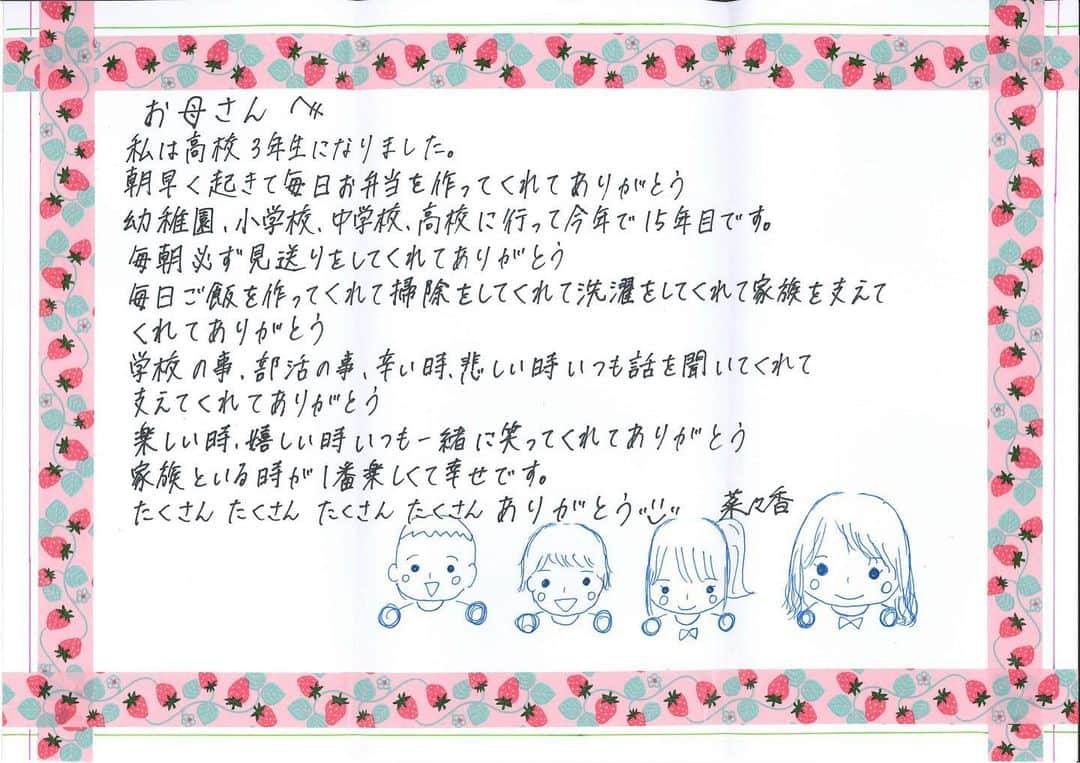 お母さんへ
私は高校3年生になりました。
朝早く起きて毎日お弁当を作ってくれてありがとう
幼稚園、小学校、中学校、高校に行って今年で15年目です。
毎朝必ず見送りをしてくれてありがとう
毎日ご飯を作ってくれて掃除をしてくれて洗濯をしてくれて家族を支えて
くれてありがとう
学校の事、部活の事、辛い時、悲しい時いつも話を聞いてくれて
支えてくれてありがとう
楽しい時、嬉しい時いつも一緒に笑ってくれてありがとう
家族といる時が1番楽しくて幸せです。
たくさん たくさん たくさん たくさん ありがとう 菜々香